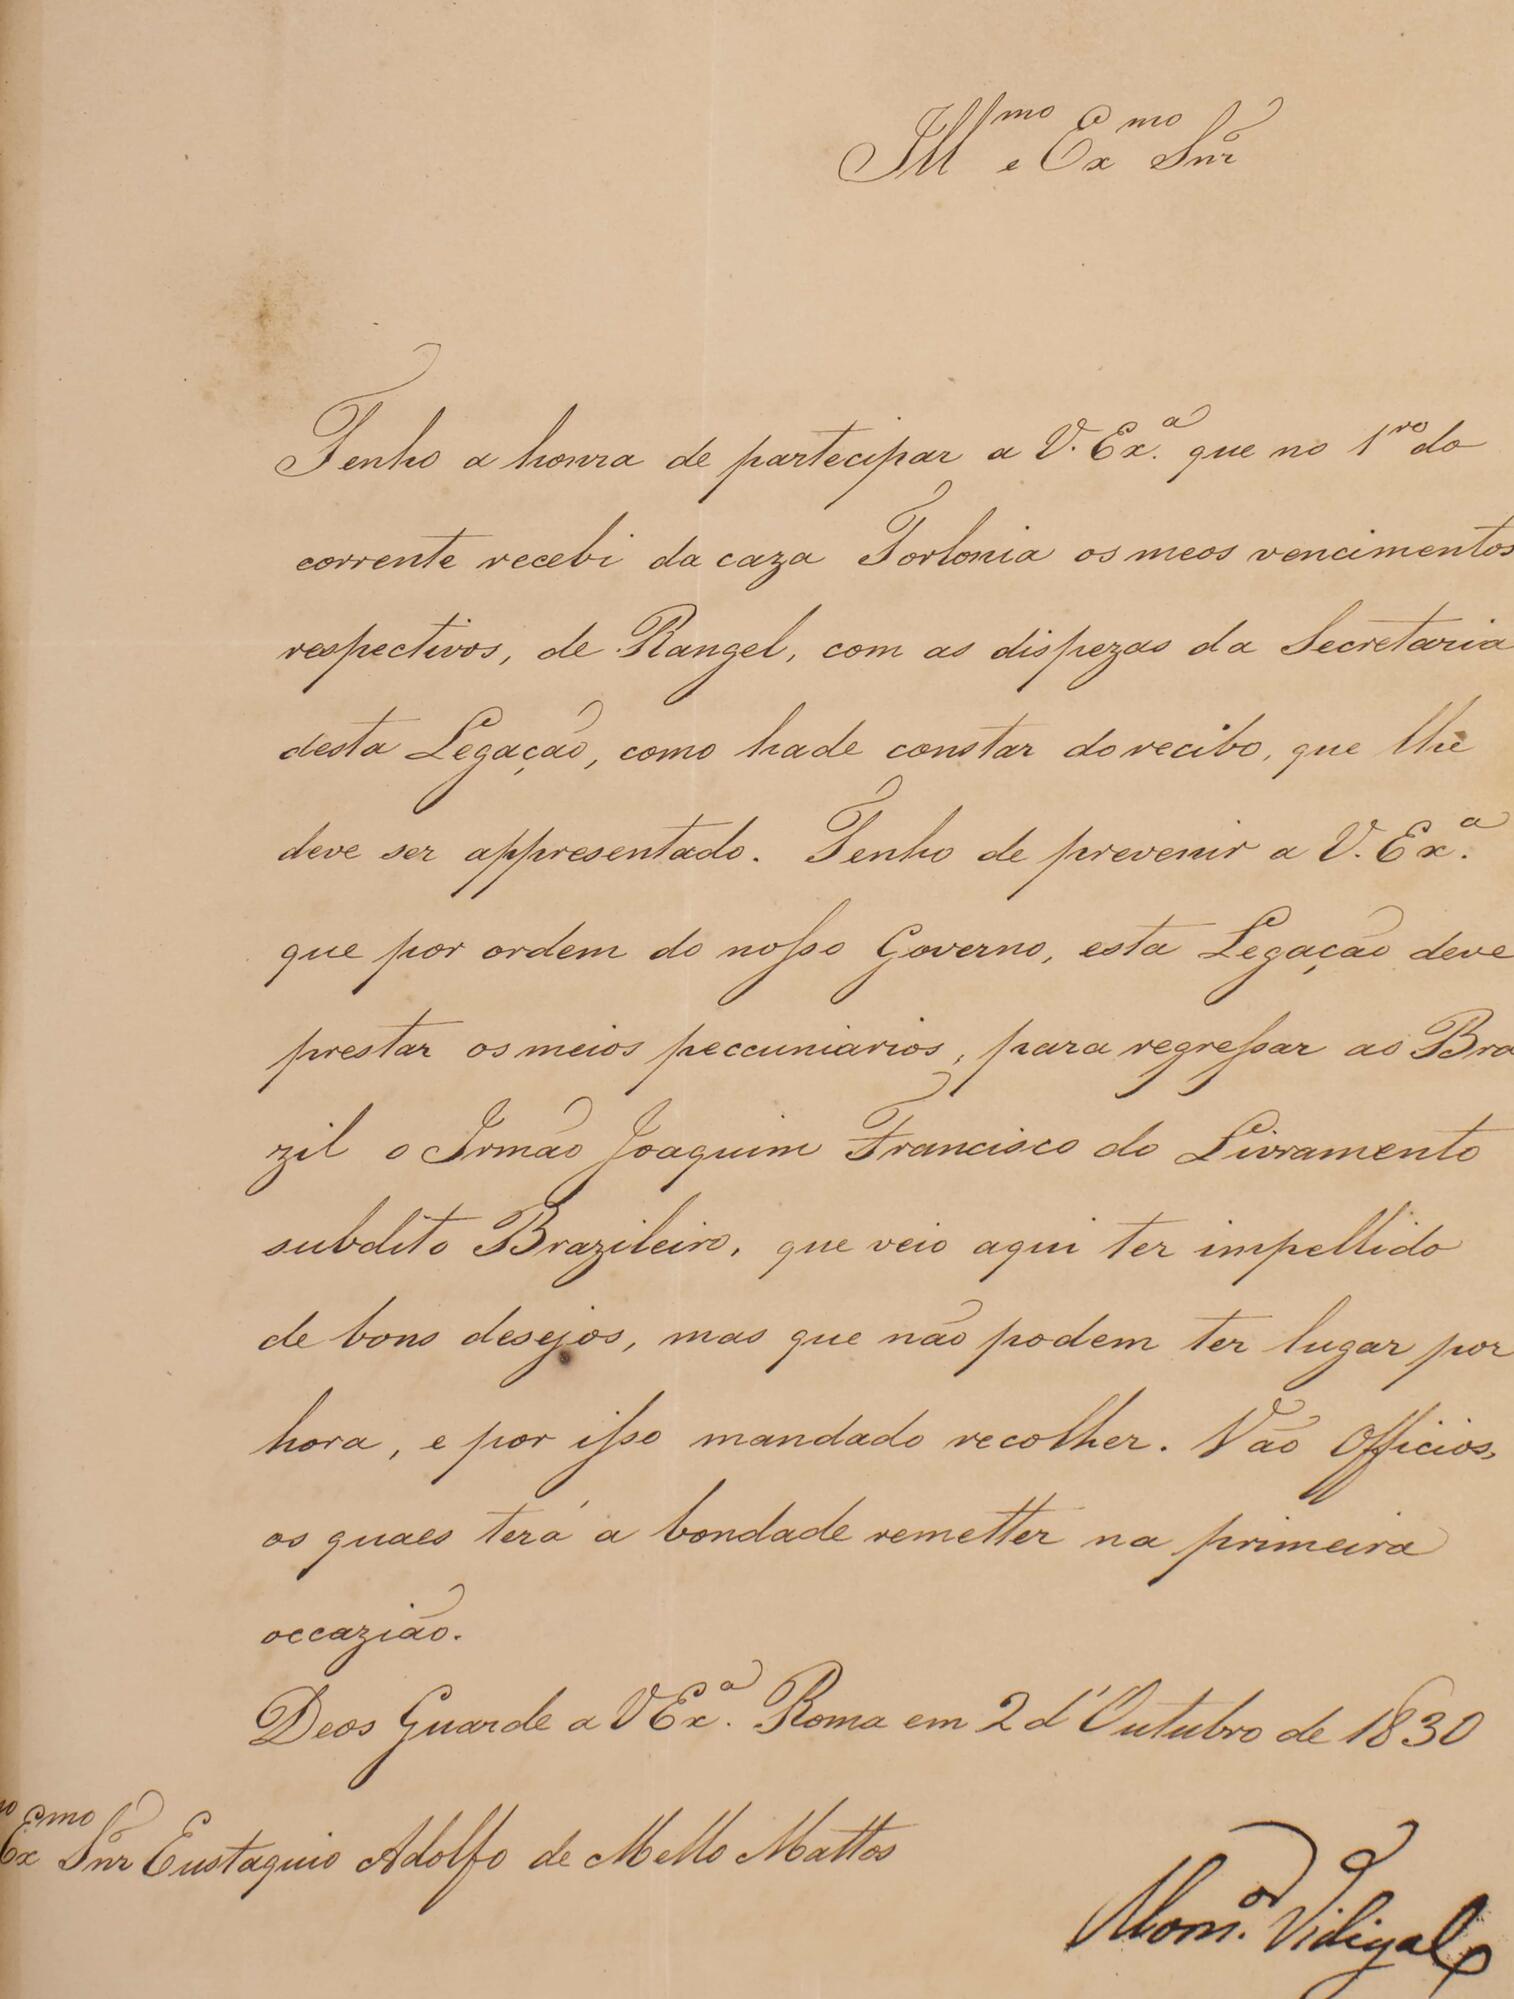 Illmo e Exmo Snr
Tenho a honra de partecipar a V. Exa. que no 1ro do
corrente recebi da caza Torlonia os meos vencimentos
respectivos, de Rangel, com as dispezas da Secretaria
desta Legação, como hade constar do recibo, que lhe
deve ser appresentado. Tenho de prevenir a V. Exa.
que por ordem do nosso Governo, esta Legação deve
prestar os meios peccuniarios, para regressar ao Bra
zil o Irmão Joaquim Francisco do Livramento
subdito Brazileiro, que veio aqui ter impellido
de bons desejos, mas que não podem ter lugar por
hora, e por isso mandado recolher. Vão Officios,
os quaes terá a bondade remetter na primeira
occazião.
Deos Guarde a V Exa. Roma em 2 d'Outubro de 1830
Exmo Snr Eustaquio Adolfo de Mello Mattos
Monsor. Vidigal